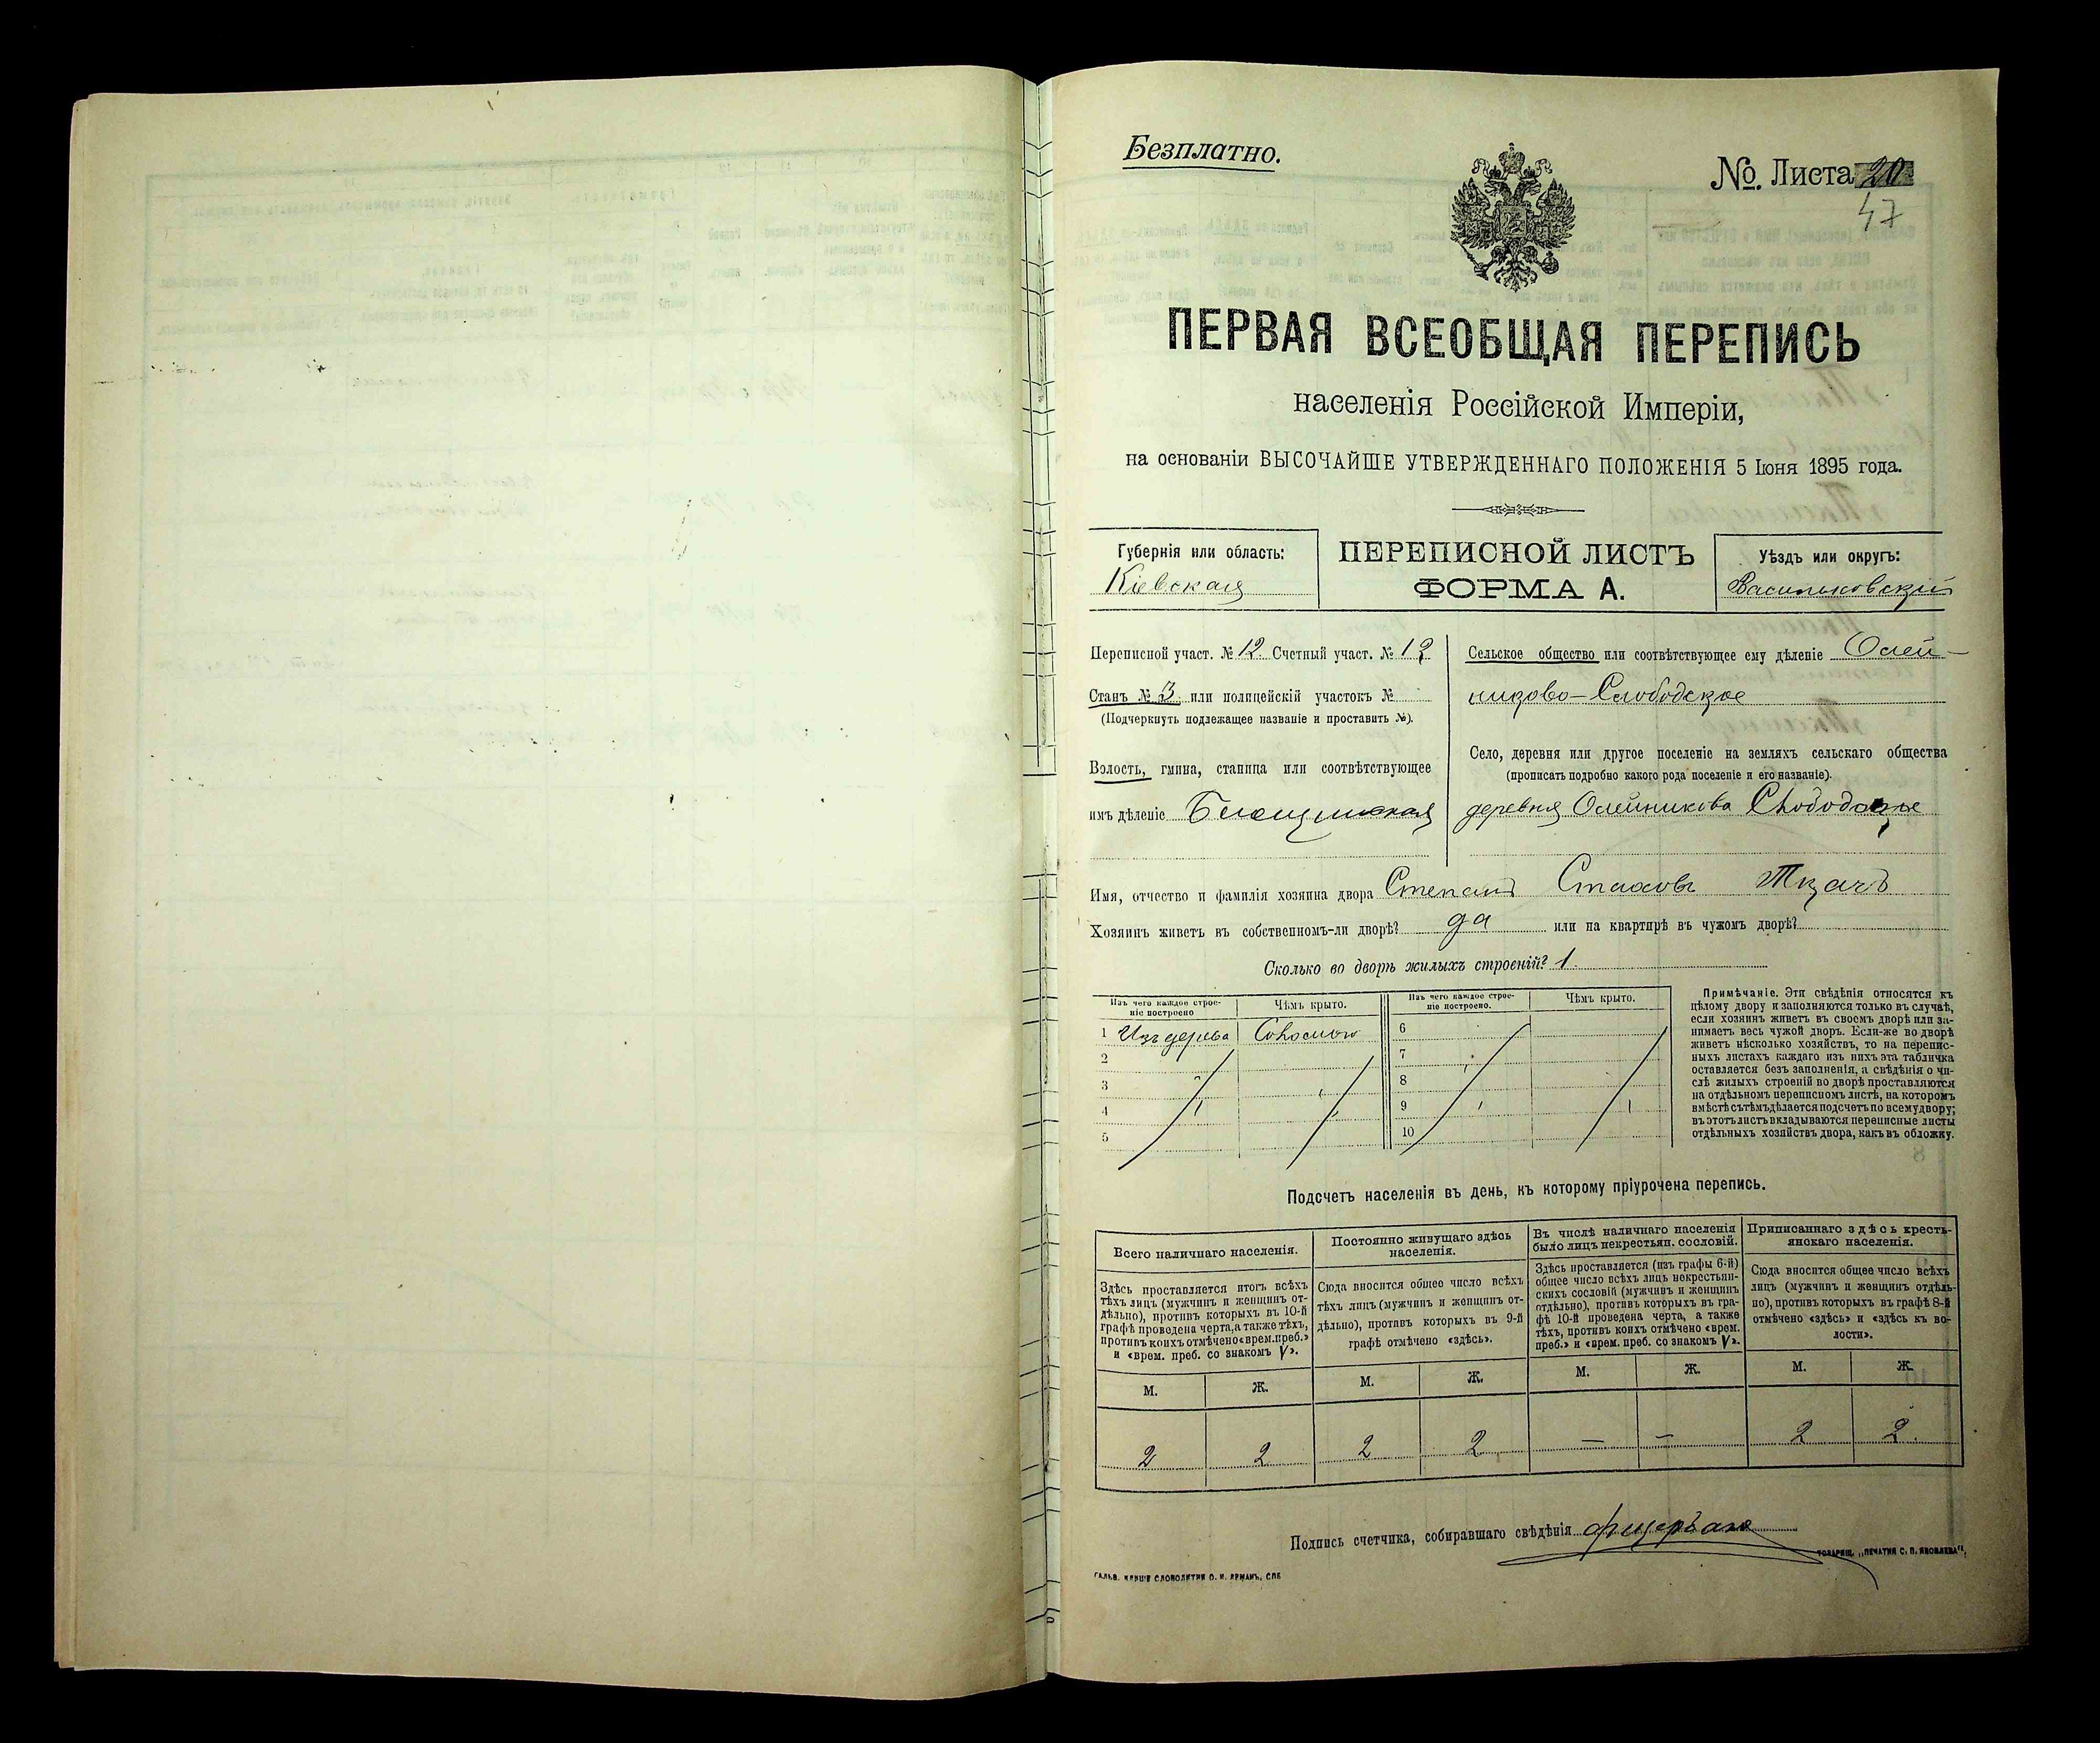 Безплатно.
№. Листа 20
47
ПЕРВАЯ ВСЕОБЩАЯ ПЕРЕПИСЬ
населенія Россійской Имперіи,
на основаніи ВЫСОЧАЙШЕ УТВЕРЖДЕННАГО ПОЛОЖЕНІЯ 5 Іюня 1895 года.
Губернія или область:
Кіевская
ПЕРЕПИСНОЙ ЛИСТЪ
ФОРМА А.
Уѣздъ или округъ:
Васильковскій
Переписной участ. № 12 Счетный участ. № 12
Станъ № 3 или полицейскій участокъ №
(Подчеркнуть подлежащее названіе и проставить №).
Волость, гмина, станица или соотвѣтствующее
имъ дѣленіе
Сельское общество или соотвѣтствующее ему дѣленіе Олей-
никово-Слободское
Село, деревня или другое поселеніе на земляхъ сельскаго общества
(прописать подробно какого рода поселеніе и его названіе).
деревня Олейникова
Имя, отчество и фамилія хозяина двора Степанъ Стаховъ Ткачъ
Хозяинъ живетъ въ собственномъ-ли дворѣ? да или на квартирѣ въ чужомъ дворѣ?
Сколько во дворѣ жилыхъ строеній? 1
Изъ чего каждое строе-
ніе построено
Чѣмъ крыто.
Изъ чего каждое строе-
ніе построено.
Чѣмъ крыто.
1 Изъ дерева Соломою
2
3
4
5
6
7
8
9
10
Примѣчаніе. Эти свѣдѣнія относятся къ
цѣлому двору и заполняются только въ случаѣ,
если хозяинъ живетъ въ своемъ дворѣ или за-
нимаетъ весь чужой дворъ. Если-же во дворѣ
живетъ нѣсколько хозяйствъ, то на перепис-
ныхъ листахъ каждаго изъ нихъ эта табличка
оставляется безъ заполненія, а свѣдѣнія о чи-
слѣ жилыхъ строеній во дворѣ проставляются
на отдѣльномъ переписномъ листѣ, на которомъ
вмѣстѣ съ тѣмъ дѣлается подсчетъ по всему двору;
въ этотъ листъ вкладываются переписные листы
отдѣльныхъ хозяйствъ двора, какъ въ обложку.
Подсчетъ населенія въ день, къ которому пріурочена перепись.
Всего наличнаго населенія.
Здѣсь проставляется итогъ всѣхъ
тѣхъ лицъ (мужчинъ и женщинъ от-
дѣльно), противъ которыхъ въ 10-й
графѣ проведена черта, а также тѣхъ,
противъ коихъ отмѣчено «врем. преб.»
и «врем. преб. со знакомъ V».
Постоянно живущаго здѣсь
населенія.
Сюда вносится общее число всѣхъ
тѣхъ лицъ (мужчинъ и женщинъ от-
дѣльно), противъ которыхъ въ 9-й
графѣ отмѣчено «здѣсь».
Въ числѣ наличнаго населенія
было лицъ некрестьян. сословій.
Здѣсь проставляется (изъ графы 6-й)
общее число всѣхъ лицъ некрестьян-
скихъ сословій (мужчинъ и женщинъ
отдѣльно), противъ которыхъ въ гра-
фѣ 10-й проведена черта, а также
тѣхъ, противъ коихъ отмѣчено «врем.
преб.» и «врем. преб. со знакомъ V».
Приписаннаго здѣсь кресть-
янскаго населенія.
Сюда вносится общее число всѣхъ
лицъ (мужчинъ и женщинъ отдѣль-
но), противъ которыхъ въ графѣ 8-й
отмѣчено «здѣсь» и «здѣсь къ во-
лости».
М. Ж. М. Ж. М. Ж. М. Ж.
2 2 2 2 — — 2 2
Подпись счетчика, собиравшаго свѣдѣнія
ТОВАРИЩ. „ПЕЧАТНЯ С. П. ЯКОВЛЕВА“.